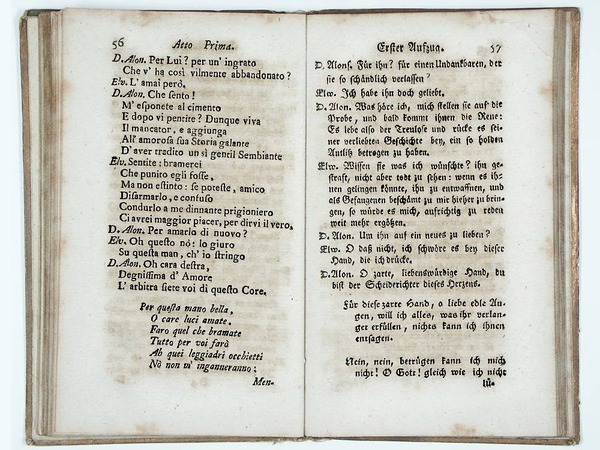 56
Atto Prima.
D. Alon. Per Lui? per un' ingrato
Che v' ha così vilmente abbandonato?
Elv. L' amai però.
D. Alon. Che sento!
M' esponete al cimento
E dopo vi pentite? Dunque viva
Il mancator, e aggiunga
All' amorosa sua Storia galante
D' aver tradito un sì gentil Sembiante
Elv. Sentite; bramerei
Che punito egli fosse,
Ma non estinto: se poteste, amico
Disarmarlo, e confuso
Condurlo a me dinnante prigioniero
Ci avrei maggior piacer, per dirvi il vero.
D. Alon. Per amarlo di nuovo?
Elv. Oh questo nó: lo giuro
Su questa man, ch' io stringo
D. Alon. Oh cara destra,
Degnissima d' Amore
L' arbitra siete voi di questo Core.
Per questa mano bella,
O care luci amate.
Faro quel che bramate
Tutto per voi farò
Ab quei leggiadri occhietti
Nò non v' inganneranno;
Men-
Erster Aufzug.
57
D. Alons. Für ihn? für einen Undankbaren, der
sie so schändlich verlassen?
Elw. Ich habe ihn doch geliebt.
D. Alon. Was höre ich, mich stellen sie auf die
Probe, und bald kommt ihnen die Reue:
Es lebe also der Treulose und rücke es sei-
ner verliebten Geschichte bey, ein so holden
Antlitz betrogen zu haben.
Elw. Wissen sie was ich wünschte? ihn ge-
straft, nicht aber todt zu sehen: wenn es ih-
nen gelingen könnte, ihn zu entwaffnen, und
als Gefangenen beschämt zu mir hieher zu brin-
gen, so würde es mich, aufrichtig zu reden
weit mehr ergötzen.
D. Alon. Um ihn auf ein neues zu lieben?
Elw. O daß nicht, ich schwöre es bey dieser
Hand, die ich drücke.
D. Alon. O zarte, liebenswürdige Hand, du
bist der Scheiderichter dieses Herzens.
Für diese zarte Hand, o liebe edle Au-
gen, will ich alles, was ihr verlan-
get erfüllen, nichts kann ich ihnen
entsagen.
Nein, nein, betrügen kann ich mich
nicht! O Gott! gleich wie ich nicht
lü-